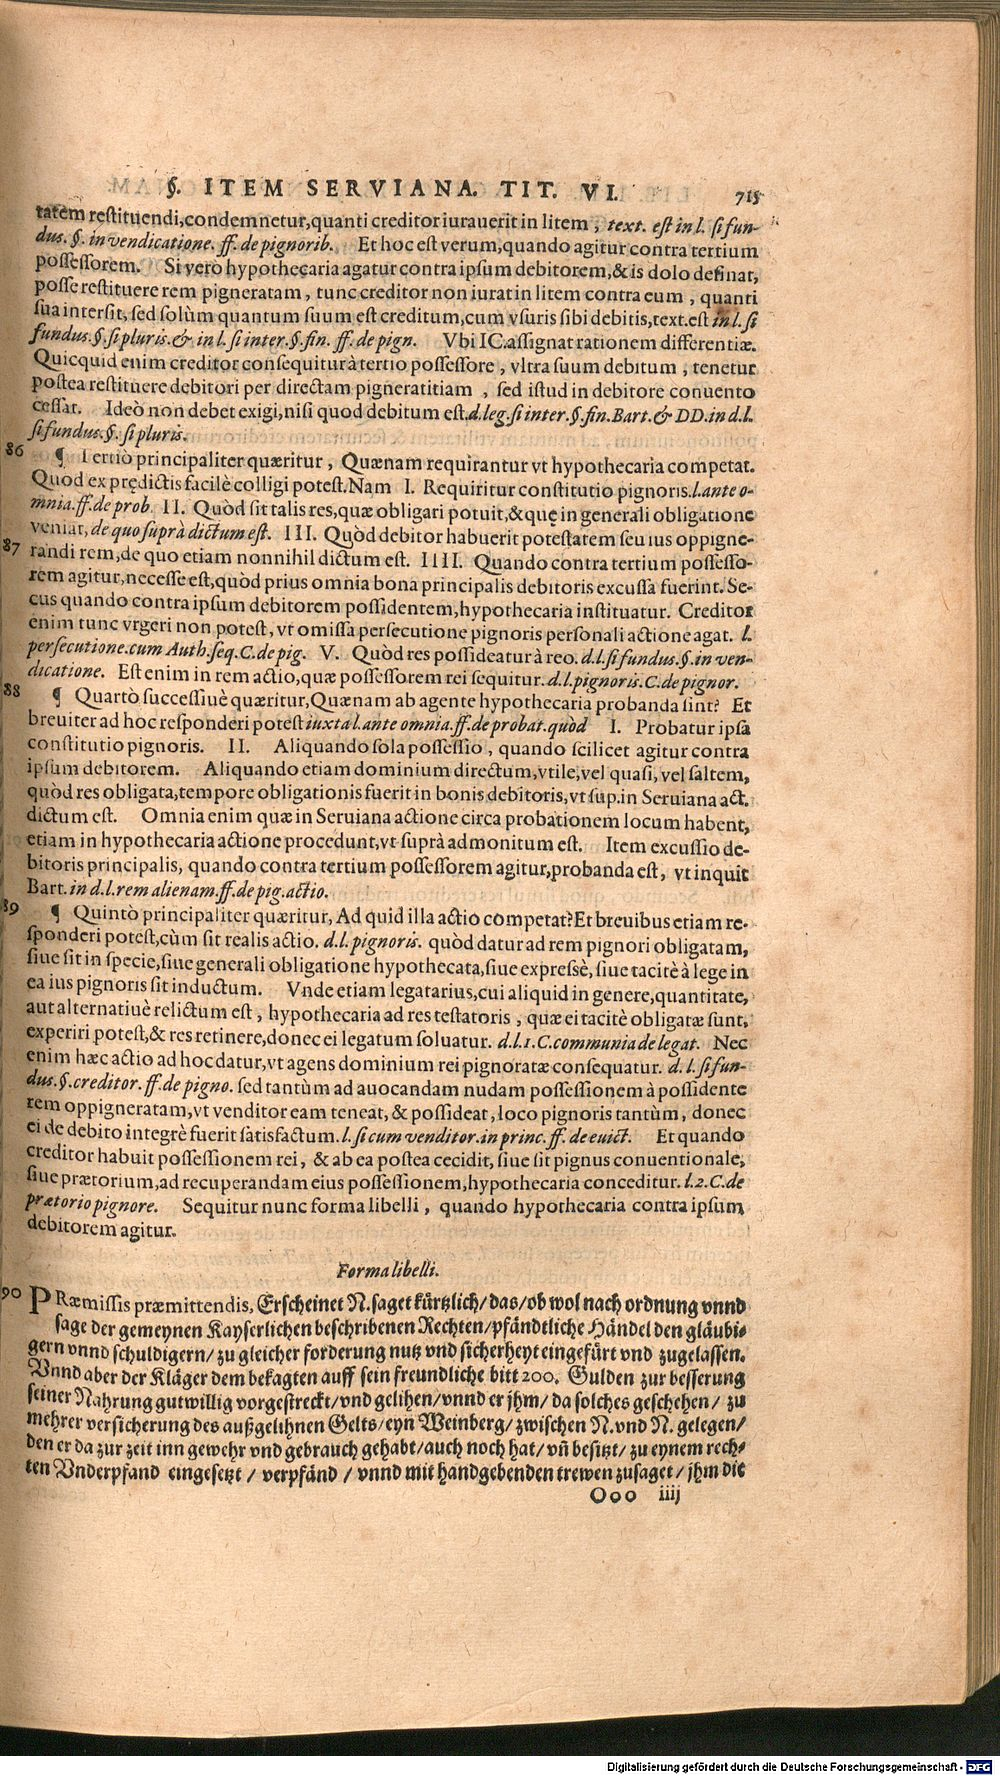 §. ITEM SERVIANA. TIT. VI. 715
tatem restituendi, condemnetur, quanti creditor iurauerit in litem, text. est in l. si fun-
dus. §. in vendicatione. ff. de pignorib. Et hoc est verum, quando agitur contra tertium
possessorem. Si vero hypothecaria agatur contra ipsum debitorem, & is dolo desinat,
posse restituere rem pigneratam, tunc creditor non iurat in litem contra eum, quanti
sua intersit, sed solùm quantum suum est creditum, cum vsuris sibi debitis, text. est in l. si
fundus. §. si pluris. & in l. si inter. §. fin. ff. de pign. Vbi IC. assignat rationem differentiæ.
Quicquid enim creditor consequitur à tertio possessore, vltra suum debitum, tenetur
postea restituere debitori per directam pigneratitiam, sed istud in debitore conuento
cessat. Ideò non debet exigi, nisi quod debitum est. d. leg. si inter. §. fin. Bart. & DD. in d. l.
si fundus. §. si pluris.
86 ¶ Tertiò principaliter quæritur, Quænam requirantur vt hypothecaria competat.
Quod ex prędictis facilè colligi potest. Nam I. Requiritur constitutio pignoris. l. ante o-
mnia. ff. de prob. II. Quòd sit talis res, quæ obligari potuit, & quę in generali obligatione
veniat, de quo suprà dictum est. III. Quòd debitor habuerit potestatem seu ius oppigne-
87 randi rem, de quo etiam nonnihil dictum est. IIII. Quando contra tertium possesso-
rem agitur, necesse est, quòd prius omnia bona principalis debitoris excussa fuerint. Se-
cus quando contra ipsum debitorem possidentem, hypothecaria instituatur. Creditor
enim tunc vrgeri non potest, vt omissa persecutione pignoris personali actione agat. l.
persecutione. cum Auth. seq. C. de pig. V. Quòd res possideatur à reo. d. l. si fundus. §. in ven-
dicatione. Est enim in rem actio, quæ possessorem rei sequitur. d. l. pignoris. C. de pignor.
88 ¶ Quartò successiuè quæritur, Quænam ab agente hypothecaria probanda sint? Et
breuiter ad hoc responderi potest iuxta l. ante omnia. ff. de probat. quòd I. Probatur ipsa
constitutio pignoris. II. Aliquando sola possessio, quando scilicet agitur contra
ipsum debitorem. Aliquando etiam dominium directum, vtile, vel quasi, vel saltem,
quòd res obligata, tempore obligationis fuerit in bonis debitoris, vt sup. in Seruiana act.
dictum est. Omnia enim quæ in Seruiana actione circa probationem locum habent,
etiam in hypothecaria actione procedunt, vt suprà admonitum est. Item excussio de-
bitoris principalis, quando contra tertium possessorem agitur, probanda est, vt inquit
Bart. in d. l. rem alienam. ff. de pig. actio.
89 ¶ Quintò principaliter quæritur, Ad quid illa actio competat? Et breuibus etiam re-
sponderi potest, cùm sit realis actio. d. l. pignoris. quòd datur ad rem pignori obligatam,
siue sit in specie, siue generali obligatione hypothecata, siue expressè, siue tacitè à lege in
ea ius pignoris sit inductum. Vnde etiam legatarius, cui aliquid in genere, quantitate,
aut alternatiuè relictum est, hypothecaria ad res testatoris, quæ ei tacitè obligatæ sunt,
experiri potest, & res retinere, donec ei legatum soluatur. d. l. 1. C. communia de legat. Nec
enim hæc actio ad hoc datur, vt agens dominium rei pignoratæ consequatur. d. l. si fun-
dus. §. creditor. ff. de pigno. sed tantùm ad auocandam nudam possessionem à possidente
rem oppigneratam, vt venditor eam teneat, & possideat, loco pignoris tantùm, donec
ei de debito integrè fuerit satisfactum. l. si cum venditor. in princ. ff. de euict. Et quando
creditor habuit possessionem rei, & ab ea postea cecidit, siue sit pignus conuentionale,
siue prætorium, ad recuperandam eius possessionem, hypothecaria conceditur. l. 2. C. de
prætorio pignore. Sequitur nunc forma libelli, quando hypothecaria contra ipsum
debitorem agitur.
Forma libelli.
90 PRæmissis præmittendis, Erscheinet N. saget kürtzlich/ das/ ob wol nach ordnung vnnd
sage der gemeynen Kayserlichen beschribenen Rechten/ pfändtliche Händel den gläubi-
gern vnnd schuldigern/ zu gleicher forderung nutz vnd sicherheyt eingefürt vnd zugelassen.
Vnnd aber der Kläger dem beklagten auff sein freundliche bitt 200. Gulden zur besserung
seiner Nahrung gutwillig vorgestreckt/ vnd gelihen/ vnnd er jhm/ da solches geschehen/ zu
mehrer versicherung des außgelihnen Gelts/ eyn Weinberg/ zwischen N. vnd N. gelegen/
den er da zur zeit inn gewehr vnd gebrauch gehabt/ auch noch hat/ vn̄ besitzt/ zu eynem rech-
ten Vnderpfand eingesetzt/ verpfänd/ vnnd mit handgebenden trewen zusaget/ jhm die
Ooo iiij
Digitalisierung gefördert durch die Deutsche Forschungsgemeinschaft - DFG